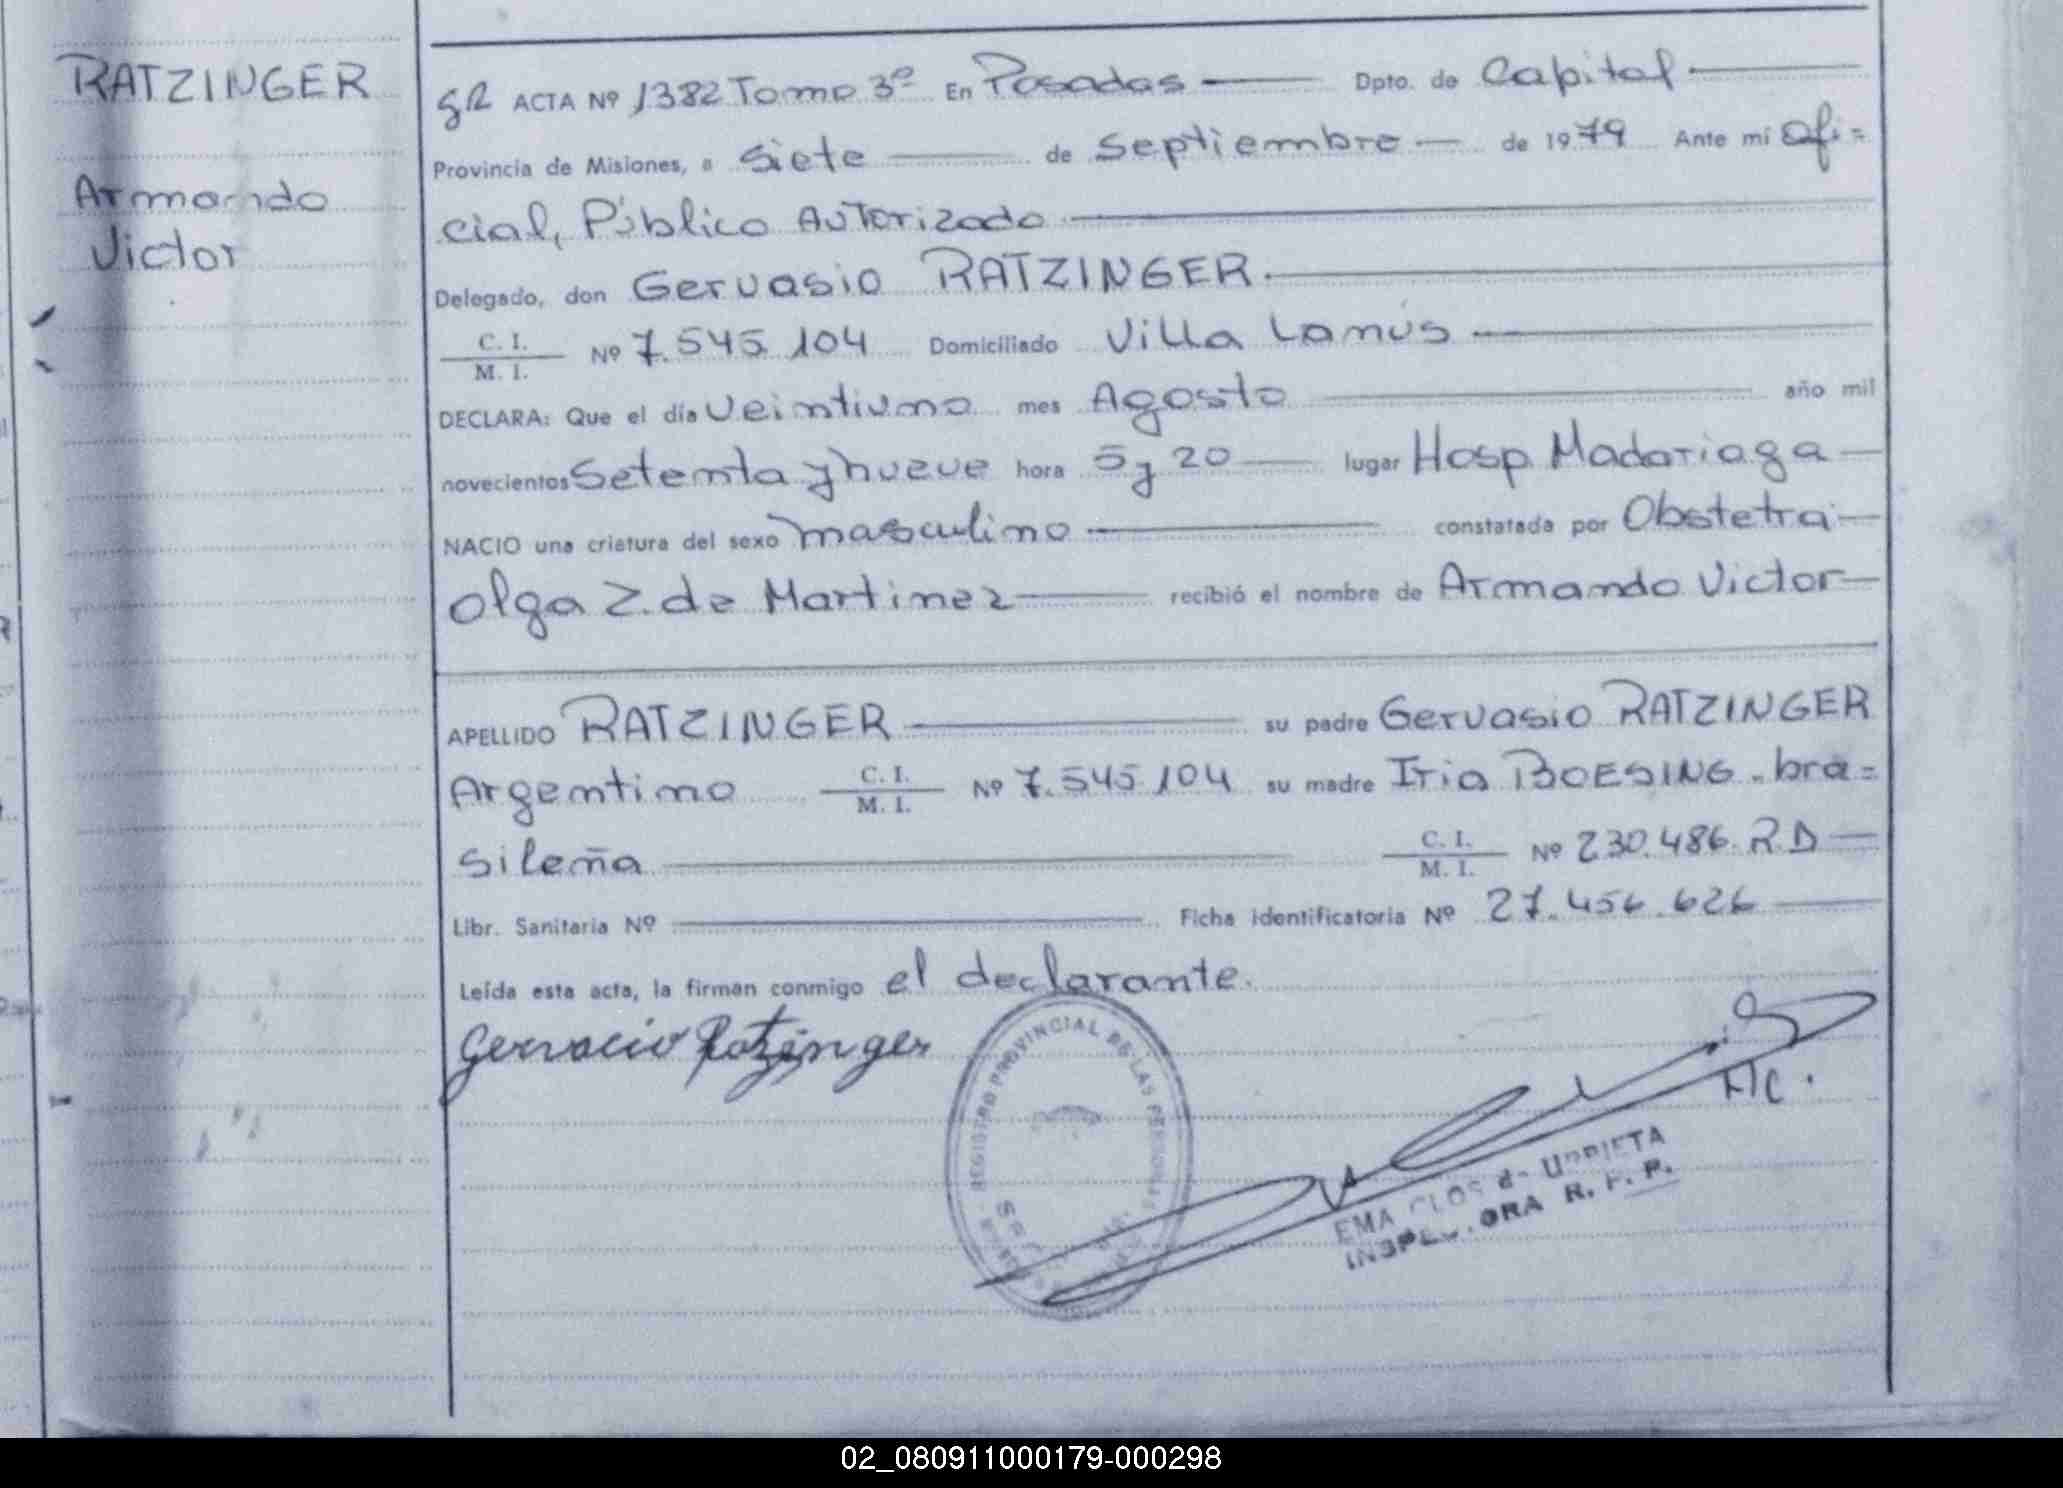 RATZINGER
Armando
Victor
gR ACTA Nº 1382 Tomo 3º En Posadas Dpto. de Capital
Provincia de Misiones, a Siete de Septiembre de 1979 Ante mí Ofi=
cial, Público Autorizado
Delegado, don Gervasio RATZINGER.
C. I.
M. I. Nº 7.545.104 Domiciliado Villa Lanús
DECLARA: Que el día Veintiuno mes Agosto año mil
novecientos Setenta y nueve hora 5 y 20 lugar Hosp. Madariaga
NACIO una criatura del sexo masculino constatada por Obstetra
Olga Z. de Martinez recibió el nombre de Armando Victor
APELLIDO RATZINGER su padre Gervasio RATZINGER
Argentino C. I. M. I. Nº 7.545.104 su madre Iria BOESING - bra=
sileña C. I. M. I. Nº 230.486. R.D
Libr. Sanitaria Nº Ficha identificatoria Nº 27.456.626
Leída esta acta, la firman conmigo el declarante.
Gervacio Ratzinger
REGISTRO PROVINCIAL DE LAS PERSONAS
EMA CLOS de URRIETA
INSPECTORA R. P. P.
02_080911000179-000298